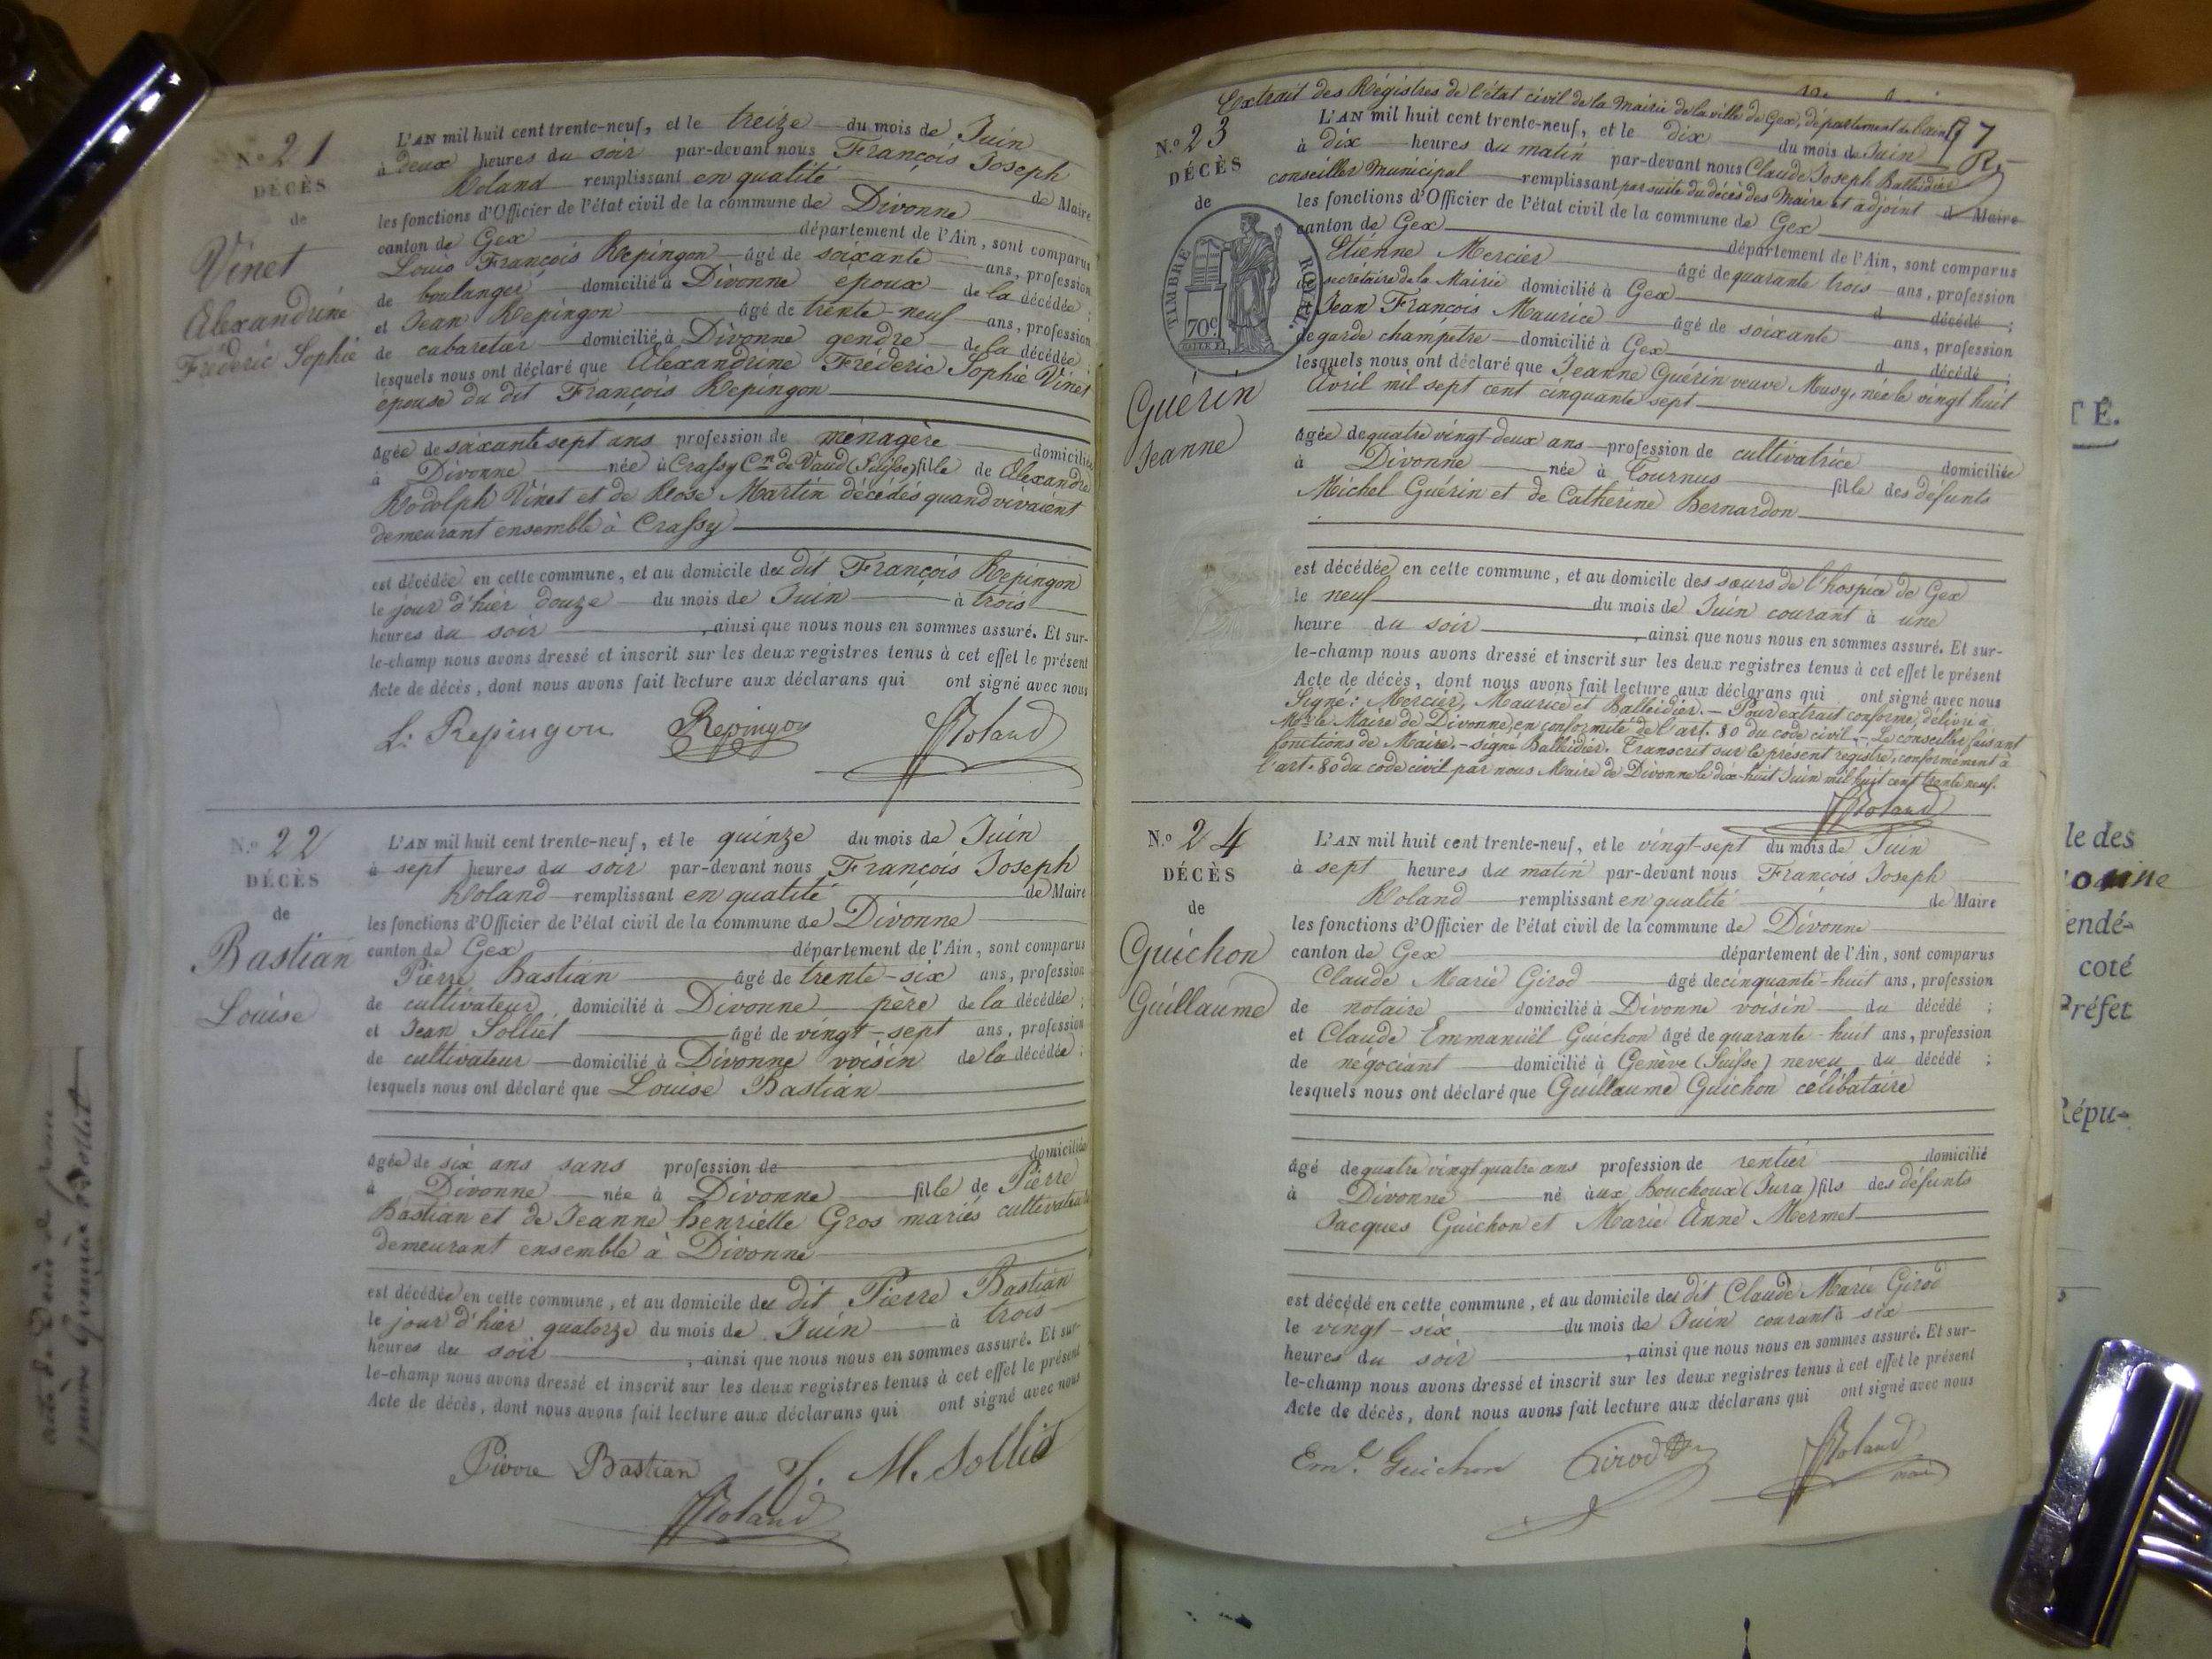 N.º 21
DÉCÈS
de
Vinet
Alexandrine
Fréderic Sophie
L'AN mil huit cent trente-neuf, et le treize du mois de Juin
à deux heures du soir par-devant nous François Joseph
Roland remplissant en qualité de Maire
les fonctions d'Officier de l'état civil de la commune de Divonne
canton de Gex département de l'Ain, sont comparus
Louis François Repingon âgé de soixante ans, profession
de boulanger domicilié à Divonne époux de la décédée ;
et Jean Repingon âgé de trente-neuf ans, profession
de cabaretier domicilié à Divonne gendre de la décédée ;
lesquels nous ont déclaré que Alexandrine Fréderic Sophie Vinet
épouse du dit François Repingon
âgée de soixante sept ans profession de ménagère domiciliée
à Divonne née à Crassy C.n de Vaud (Suisse) fille de Alexandre
Rodolph Vinet et de Rose Martin décédés quand vivaient
demeurant ensemble à Crassy
est décédée en cette commune, et au domicile du dit François Repingon
le jour d'hier douze du mois de Juin à trois
heures du soir, ainsi que nous nous en sommes assuré. Et sur-
le-champ nous avons dressé et inscrit sur les deux registres tenus à cet effet le présent
Acte de décès, dont nous avons fait lecture aux déclarans qui ont signé avec nous
L: Repingon Repingon Roland
N.º 22
DÉCÈS
de
Bastian
Louise
L'AN mil huit cent trente-neuf, et le quinze du mois de Juin
à sept heures du soir par-devant nous François Joseph
Roland remplissant en qualité de Maire
les fonctions d'Officier de l'état civil de la commune de Divonne
canton de Gex département de l'Ain, sont comparus
Pierre Bastian âgé de trente-six ans, profession
de cultivateur domicilié à Divonne père de la décédée ;
et Jean Solliet âgé de vingt-sept ans, profession
de cultivateur domicilié à Divonne voisin de la décédée ;
lesquels nous ont déclaré que Louise Bastian
âgée de six ans sans profession de domiciliée
à Divonne née à Divonne fille de Pierre
Bastian et de Jeanne henriette Gros mariés cultivateurs
demeurant ensemble à Divonne
est décédée en cette commune, et au domicile du dit Pierre Bastian
le jour d'hier quatorze du mois de Juin à trois
heures du soir, ainsi que nous nous en sommes assuré. Et sur-
le-champ nous avons dressé et inscrit sur les deux registres tenus à cet effet le présent
Acte de décès, dont nous avons fait lecture aux déclarans qui ont signé avec nous
Pierre Bastian J. M. Sollié
Roland
Extrait des Régistres de l'état civil de la Mairie de la ville de Gex, département de l'ain
97
N.º 23
DÉCÈS
de
TIMBRE ROYAL
70c
Guérin
Jeanne
L'AN mil huit cent trente-neuf, et le dix du mois de Juin
à dix heures du matin par-devant nous Claude Joseph Balleidier
conseiller Municipal remplissant par suite du décès des Maire et adjoint d Maire
les fonctions d'Officier de l'état civil de la commune de Gex
canton de Gex département de l'Ain, sont comparus
Etienne Mercier âgé de quarante trois ans, profession
de secretaire de la Mairie domicilié à Gex d décédé ;
Jean François Maurice âgé de soixante ans, profession
de garde champêtre domicilié à Gex d décédé ;
lesquels nous ont déclaré que Jeanne Guérin veuve Musy, née le vingt huit
Avril mil sept cent cinquante sept
âgée de quatre vingt deux ans profession de cultivatrice domiciliée
à Divonne née à Tournus fille des défunts
Michel Guérin et de Catherine Bernardon
est décédée en cette commune, et au domicile des sœurs de l'hospice de Gex
le neuf du mois de Juin courant à une
heure du soir, ainsi que nous nous en sommes assuré. Et sur-
le-champ nous avons dressé et inscrit sur les deux registres tenus à cet effet le présent
Acte de décès, dont nous avons fait lecture aux déclarans qui ont signé avec nous
Signé : Mercier, Maurice et Balleidier. — Pour extrait conforme, délivré à
Mr le Maire de Divonne, en conformité de l'art. 80 du code civil. — Le conseiller faisant
fonctions de Maire. — signé Balleidier. Transcrit sur le présent registre, conformément à
l'art. 80 du code civil par nous Maire de Divonne le dix-huit Juin mil huit cent trente neuf.
Roland
N.º 24
DÉCÈS
de
Guichon
Guillaume
L'AN mil huit cent trente-neuf, et le vingt-sept du mois de Juin
à sept heures du matin par-devant nous François Joseph
Roland remplissant en qualité de Maire
les fonctions d'Officier de l'état civil de la commune de Divonne
canton de Gex département de l'Ain, sont comparus
Claude Marie Girod âgé de cinquante-huit ans, profession
de notaire domicilié à Divonne voisin du décédé ;
et Claude Emmanuël Guichon âgé de quarante-huit ans, profession
de négociant domicilié à Genève (Suisse) neveu du décédé ;
lesquels nous ont déclaré que Guillaume Guichon célibataire
âgé de quatre vingt quatre ans profession de rentier domicilié
à Divonne né aux bouchoux (Jura) fils des défunts
Jacques Guichon et Marie Anne Mermet
est décédé en cette commune, et au domicile du dit Claude Marie Girod
le vingt-six du mois de Juin courant à six
heures du soir, ainsi que nous nous en sommes assuré. Et sur-
le-champ nous avons dressé et inscrit sur les deux registres tenus à cet effet le présent
Acte de décès, dont nous avons fait lecture aux déclarans qui ont signé avec nous
Em.l Guichon Girod Roland
TÉ.
le des
endé-
coté
Préfet
Répu-